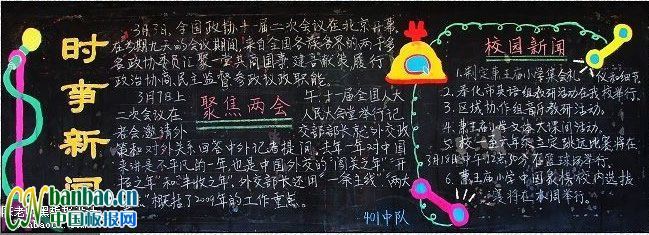 时事新河
3月3日,全国政协十一届二次会议在北京开幕
在为期九天的会议期间,来自全国各族各界的两千多
名政协委员汇聚一堂共商国是建言献策履行
政治协商民主监督参政议政职能。
聚焦两会
3月7日上午十一届全国人大
二次会议在人民大会堂举行记
者会邀请外交部部长就外交政
策和对外关系回答中外记者提问,去年一年对中国
来讲是不平凡的一年也是中国外交的"闯关之年""开
拓之年"和"丰收之年"。外交部长还用"一条主线""两大
概括了2009年的工作重点。
校园新闻
1.制定惠王庙小学集会礼仪
2.奉化市英语组教研活动在我校举行。
3.区域协作组音乐教研活动。
4.惠王庙小学文体大课间活动。
5.校一至六年级立定跳远比赛将在
3月18日中午12点30分在篮球场举行。
6.惠王庙小学中国象棋校内选拔
赛将在本周举行。
401中队
CNbanbao.cn
中国板报网